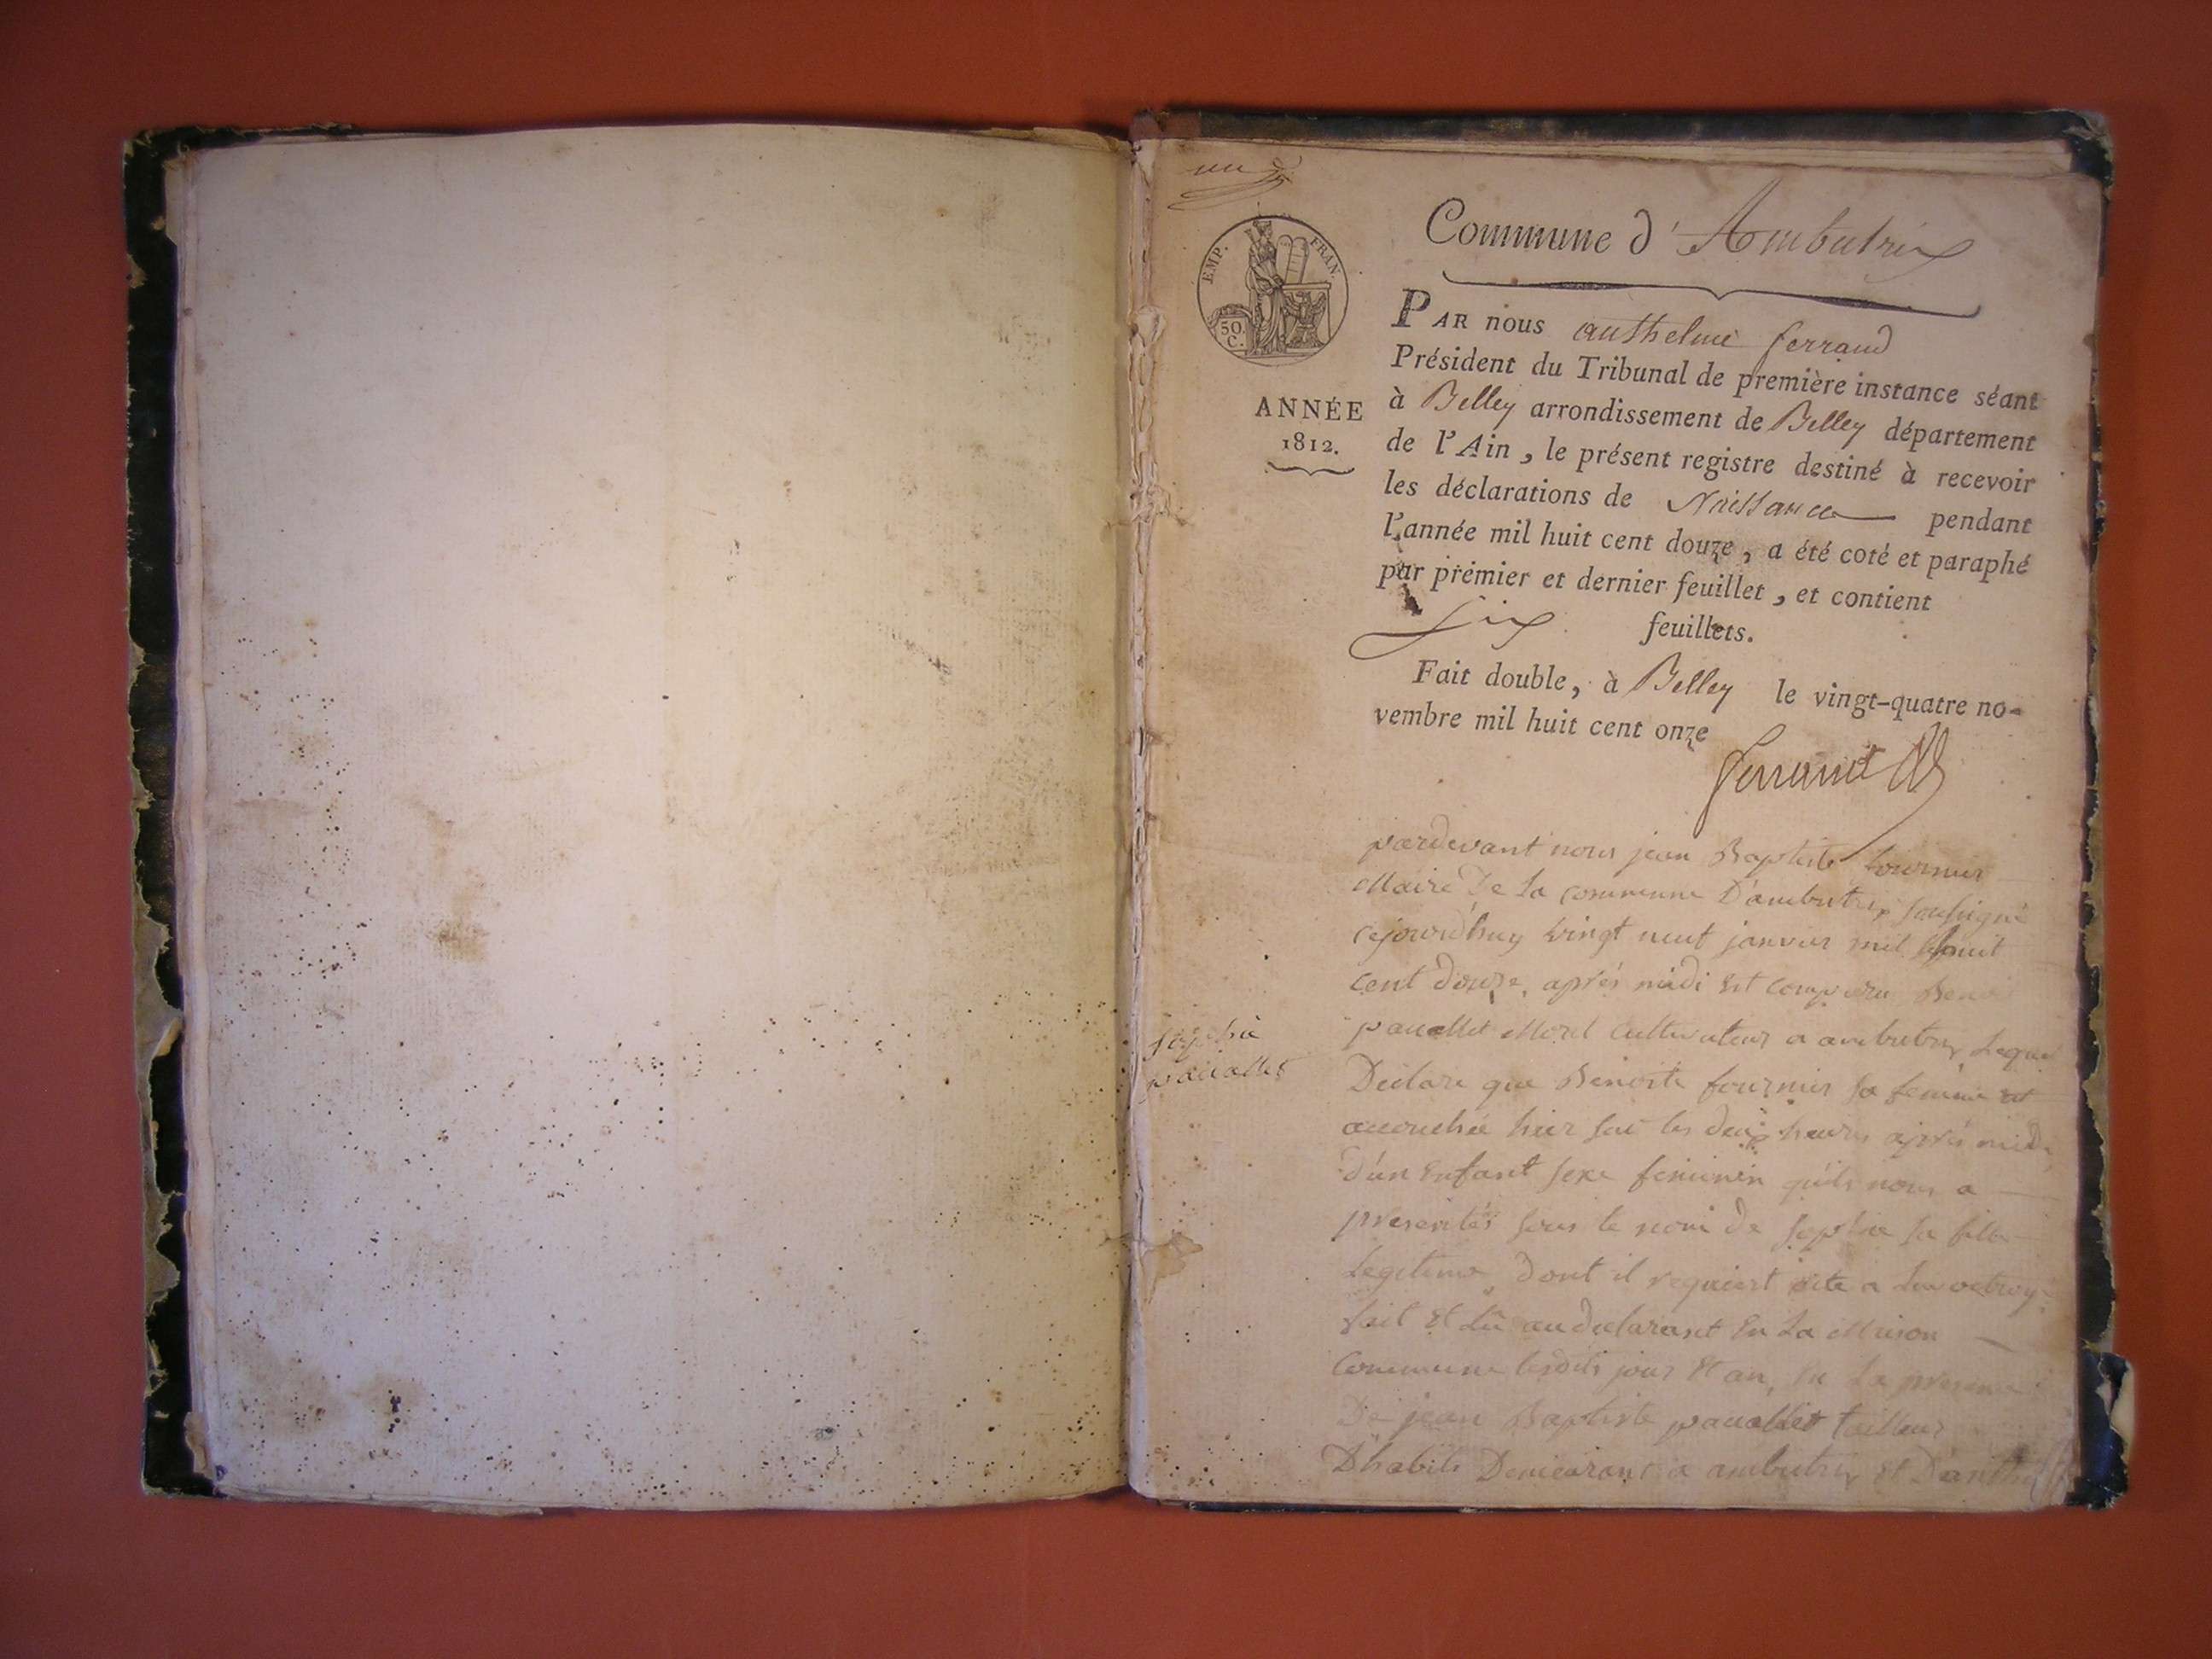 un
EMP. FRAN.
50. C.
Commune d'Ambutrix
ANNÉE
1812.
PAR nous anthelme ferrand
Président du Tribunal de première instance séant
à Belley arrondissement de Belley département
de l'Ain, le présent registre destiné à recevoir
les déclarations de Naissance pendant
l'année mil huit cent douze, a été coté et paraphé
par premier et dernier feuillet, et contient
six feuillets.
Fait double, à Belley le vingt-quatre no-
vembre mil huit cent onze
ferrand
pardevant nous jean Baptiste fournier
Maire De la commune D'ambutrix soussigné
cejourdhuy vingt neuf janvier mil huit
cent douze, après midi Est comparu Benoit
pauallet Morel cultivateur a ambutrix Lequel
Déclare que Benoite fournier sa femme est
accouchée hier sur les deux heures après midi
d'un Enfant sexe feminin qu'ils nous a
presentés sous le nom de sophie sa fille
Legitime, Dont il requiert acte a lui octroyé
fait Et Lu au declarant En La Maison
Commune lesdits jour Et an, En La presence
De jean Baptiste pauallet tailleur
D'habits Demeurant a ambutrix Et D'anthel
sophie
pauallet